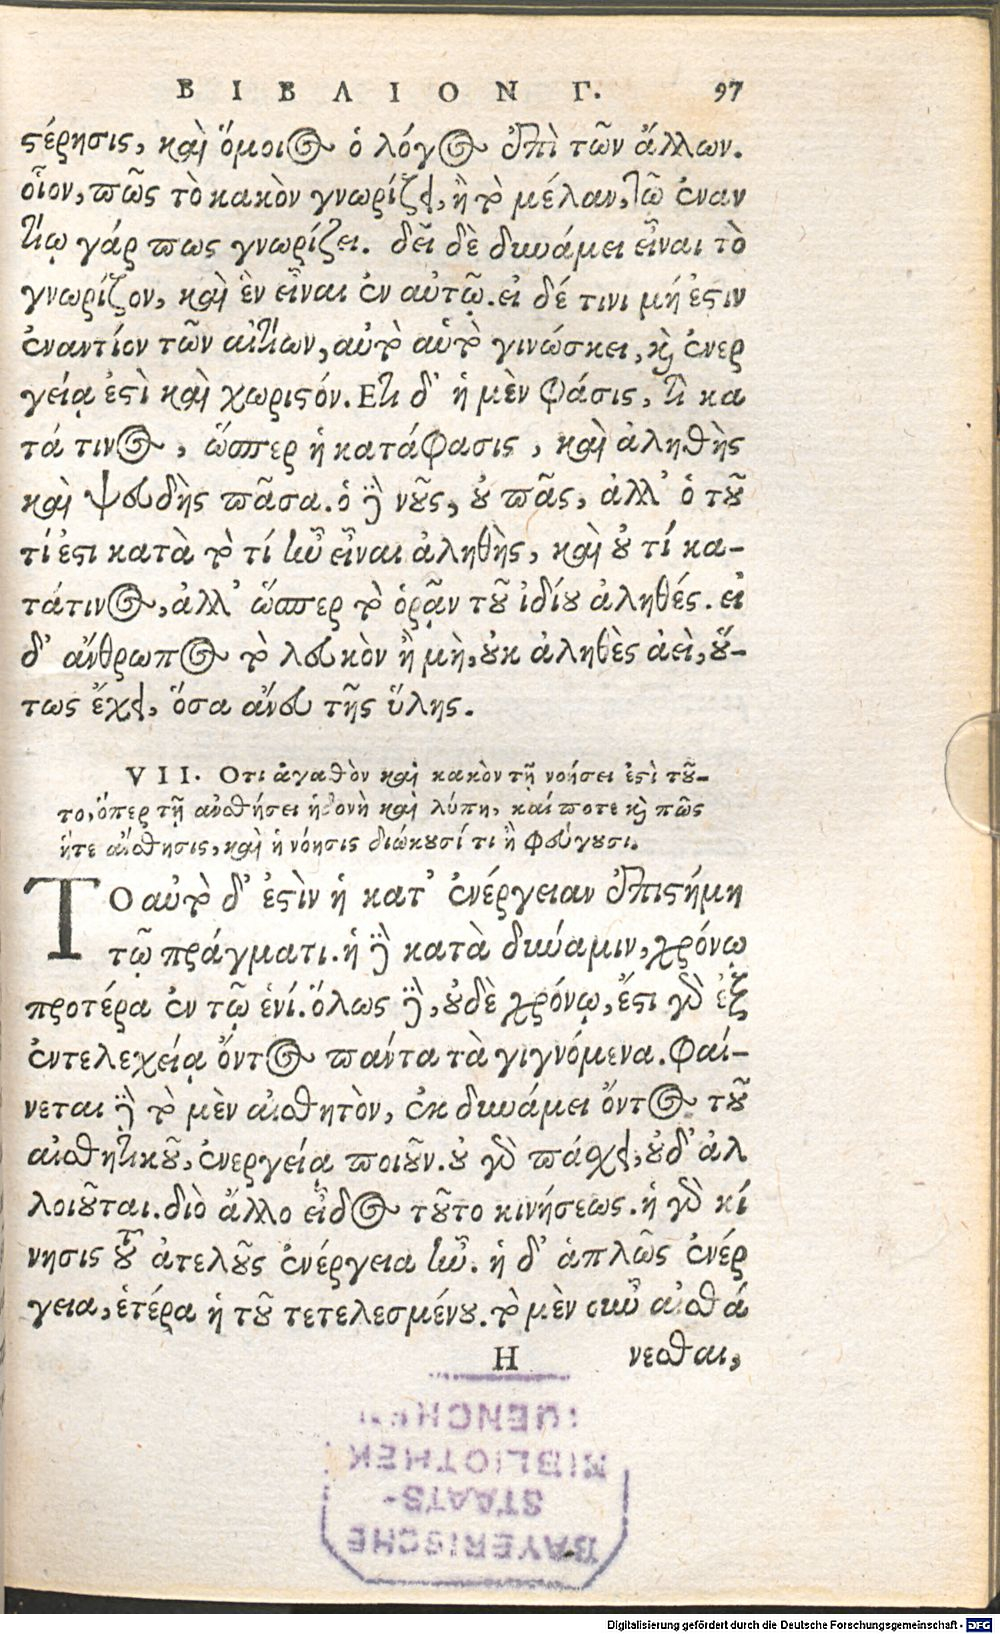 ΒΙΒΛΙΟΝ Γ. 97
στέρησις, καὶ ὅμοιος ὁ λόγος ἐπὶ τῶν ἄλλων.
οἷον, πῶς τὸ κακὸν γνωρίζει, ἢ τὸ μέλαν, τῷ ἐναν
τίῳ γάρ πως γνωρίζει. δεῖ δὲ δυνάμει εἶναι τὸ
γνωρίζον, καὶ ἓν εἶναι ἐν αὐτῷ. εἰ δέ τινι μή ἐστιν
ἐναντίον τῶν αἰτίων, αὐτὸ αὑτὸ γινώσκει, καὶ ἐνερ
γείᾳ ἐστὶ καὶ χωριστόν. Ετι δ' ἡ μὲν φάσις, τὶ κα
τά τινος, ὥσπερ ἡ κατάφασις, καὶ ἀληθὴς
καὶ ψευδὴς πᾶσα. ὁ δὲ νοῦς, οὐ πᾶς, ἀλλ' ὁ τοῦ
τί ἐστι κατὰ τὸ τί ἦν εἶναι ἀληθὴς, καὶ οὐ τί κα-
τάτινος, ἀλλ' ὥσπερ τὸ ὁρᾷν τοῦ ἰδίου ἀληθές. εἰ
δ' ἄνθρωπος τὸ λευκὸν ἢ μὴ, οὐκ ἀληθὲς ἀεὶ, οὕ-
τως ἔχει, ὅσα ἄνευ τῆς ὕλης.
VII. Οτι ἀγαθὸν καὶ κακὸν τῇ νοήσει ἐστὶ τοῦ-
το, ὅπερ τῇ αἰσθήσει ἡδονὴ καὶ λύπη, καί ποτε καὶ πῶς
ἥτε αἴσθησις, καὶ ἡ νόησις διώκουσί τι ἢ φεύγουσι.
ΤΟ αὐτὸ δ' ἐστὶν ἡ κατ' ἐνέργειαν ἐπιστήμη
τῷ πράγματι. ἡ δὲ κατὰ δύναμιν, χρόνῳ
προτέρα ἐν τῷ ἑνί. ὅλως δὲ, οὐδὲ χρόνῳ, ἔστι γὰρ ἐξ
ἐντελεχείᾳ ὄντος πάντα τὰ γιγνόμενα. φαί-
νεται δὲ τὸ μὲν αἰσθητὸν, ἐκ δυνάμει ὄντος τοῦ
αἰσθητικοῦ, ἐνεργείᾳ ποιοῦν. οὐ γὰρ πάσχει, οὐδ' ἀλ
λοιοῦται. διὸ ἄλλο εἶδος τοῦτο κινήσεως. ἡ γὰρ κί
νησις τοῦ ἀτελοῦς ἐνέργεια ἦν. ἡ δ' ἁπλῶς ἐνέρ
γεια, ἑτέρα ἡ τοῦ τετελεσμένου. τὸ μὲν οὖν αἰσθά
H νεσθαι,
BAYERISCHE
STAATS-
BIBLIOTHEK
MUENCHEN
Digitalisierung gefördert durch die Deutsche Forschungsgemeinschaft - DFG